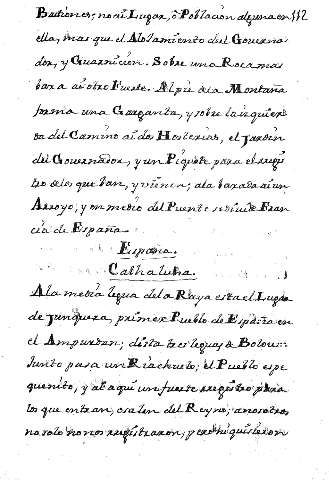 Bastiones; no ai Lugar, ò Población alguna en 112
ella, mas que el Aloxamiento del Governa-
dor, y Guarnición. Sobre una Roca mas
baxa ai otro Fuerte. Al pie de la Montaña
forma una Garganta, y sobre la izquier-
da del Camino ai dos Hosterias, el Jardin
del Governador, y un Piquete para el regis
tro de los que van, y vienen; a la baxada ai un
Arroyo; y en medio del Puente se divide Fran
cia de España.
España.
Cathaluña.
A la media legua de la Raya esta el Lugar
de Junquera, primer Pueblo de España en
el Ampurdan; dista tres leguas de Bolou:
Junto pasa un Riachuelo; el Pueblo es pe
quenito, y ai aqui un fuerte registro para
los que entran, o salen del Reyno; a nosotros
no solo no nos registraron; pero ni quisieron